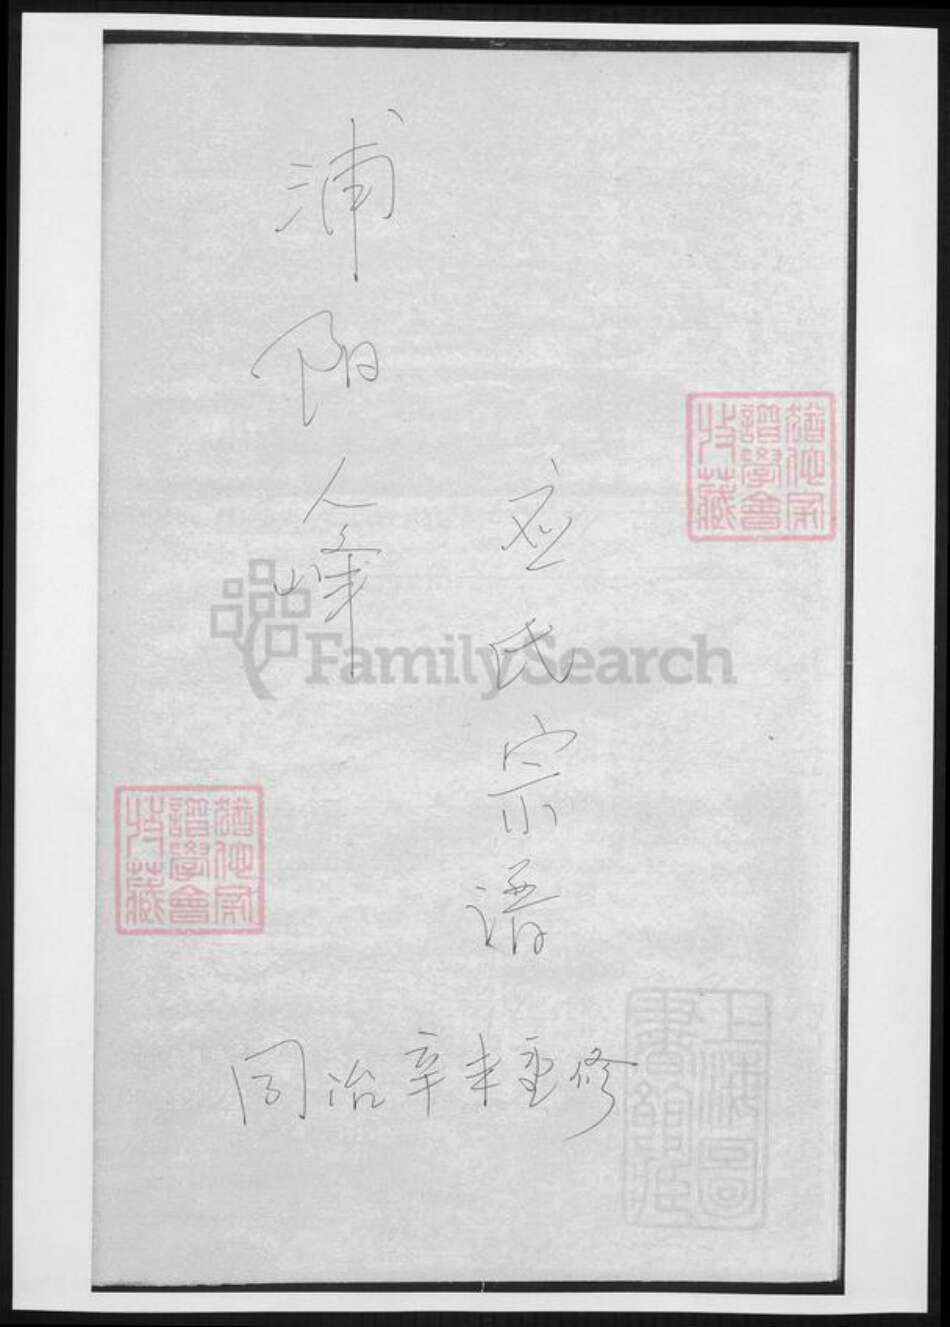 浦阳人峰
应氏宗谱
同治辛未重修
猶他家
譜學會
收藏
猶他家
譜學會
收藏
上海圖
書館藏
FamilySearch